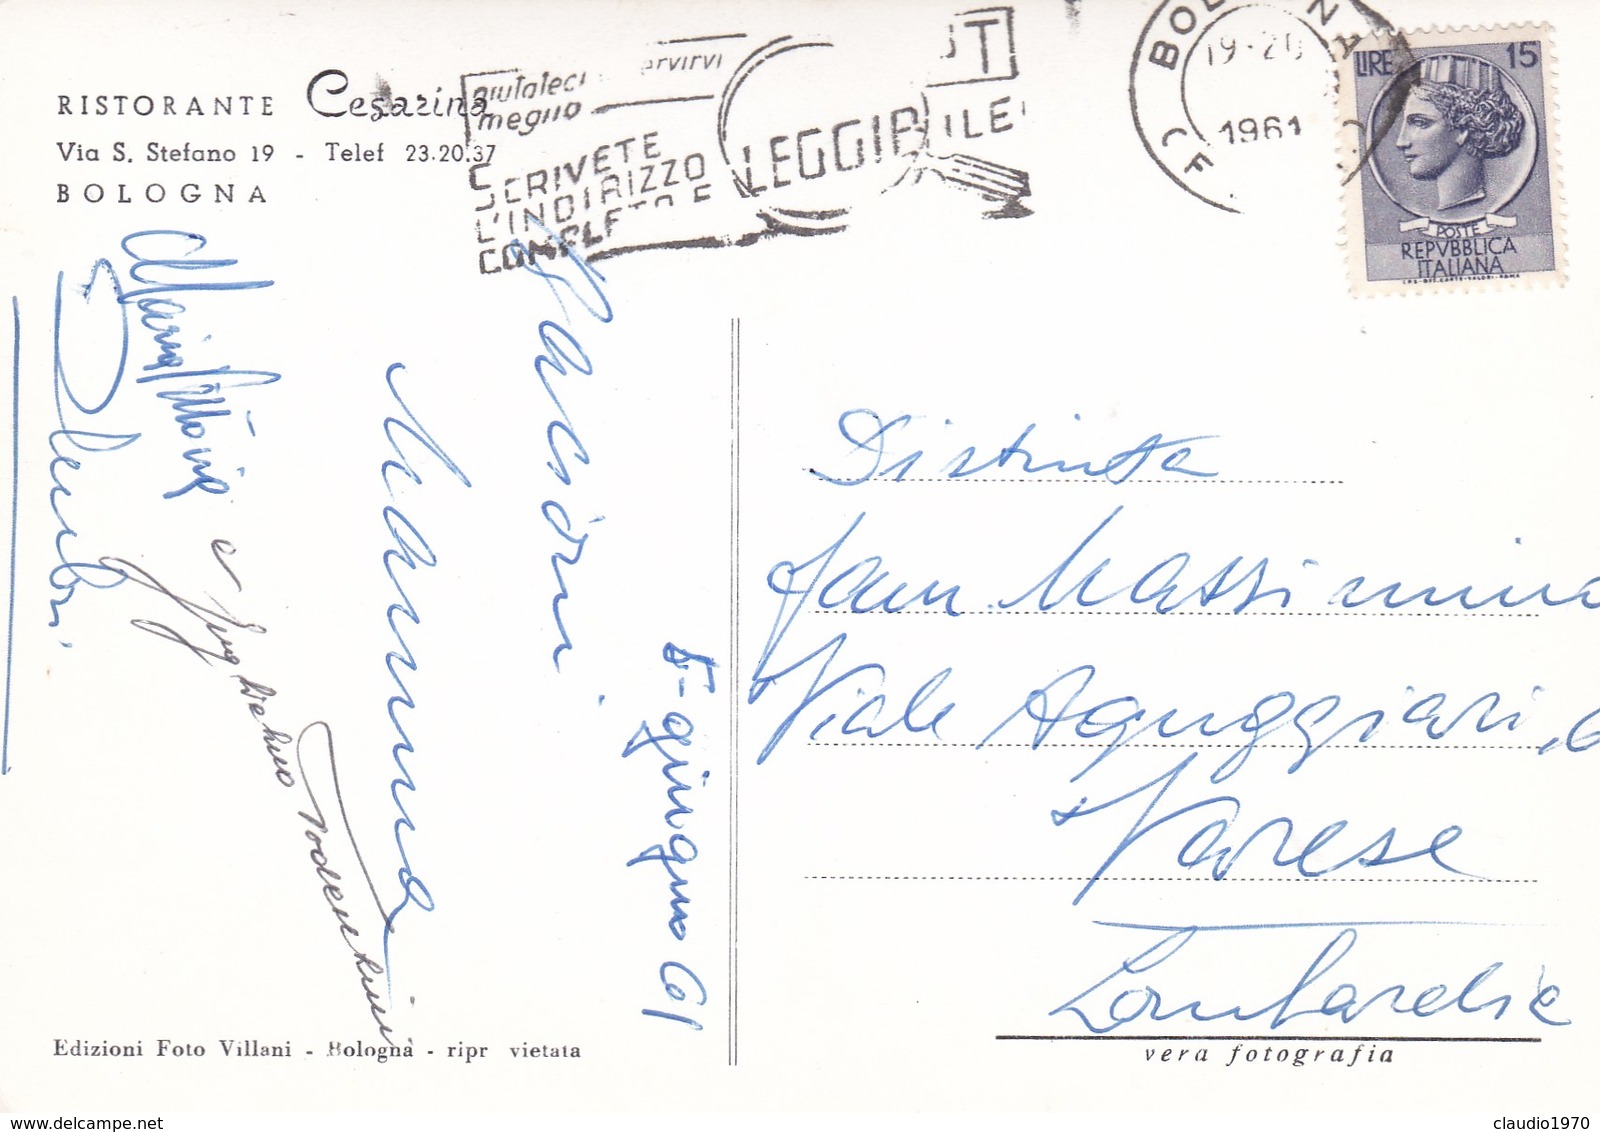 RISTORANTE Cesarina
Via S. Stefano 19 - Telef 23.20.37
BOLOGNA
aiutateci servirvi
meglio
SCRIVETE
L'INDIRIZZO
COMPLETO E
LEGGIBILE
BOLOGNA
19-20
1961
LIRE 15
POSTE
REPVBBLICA
ITALIANA
Bacioni
Mamma
5-giugno 61
Maria
e
Todeschini
Distinta
Fam. Massimino
Viale Aguggiari, 6
Varese
Lombardia
Edizioni Foto Villani - Bologna - ripr vietata
vera fotografia
claudio1970